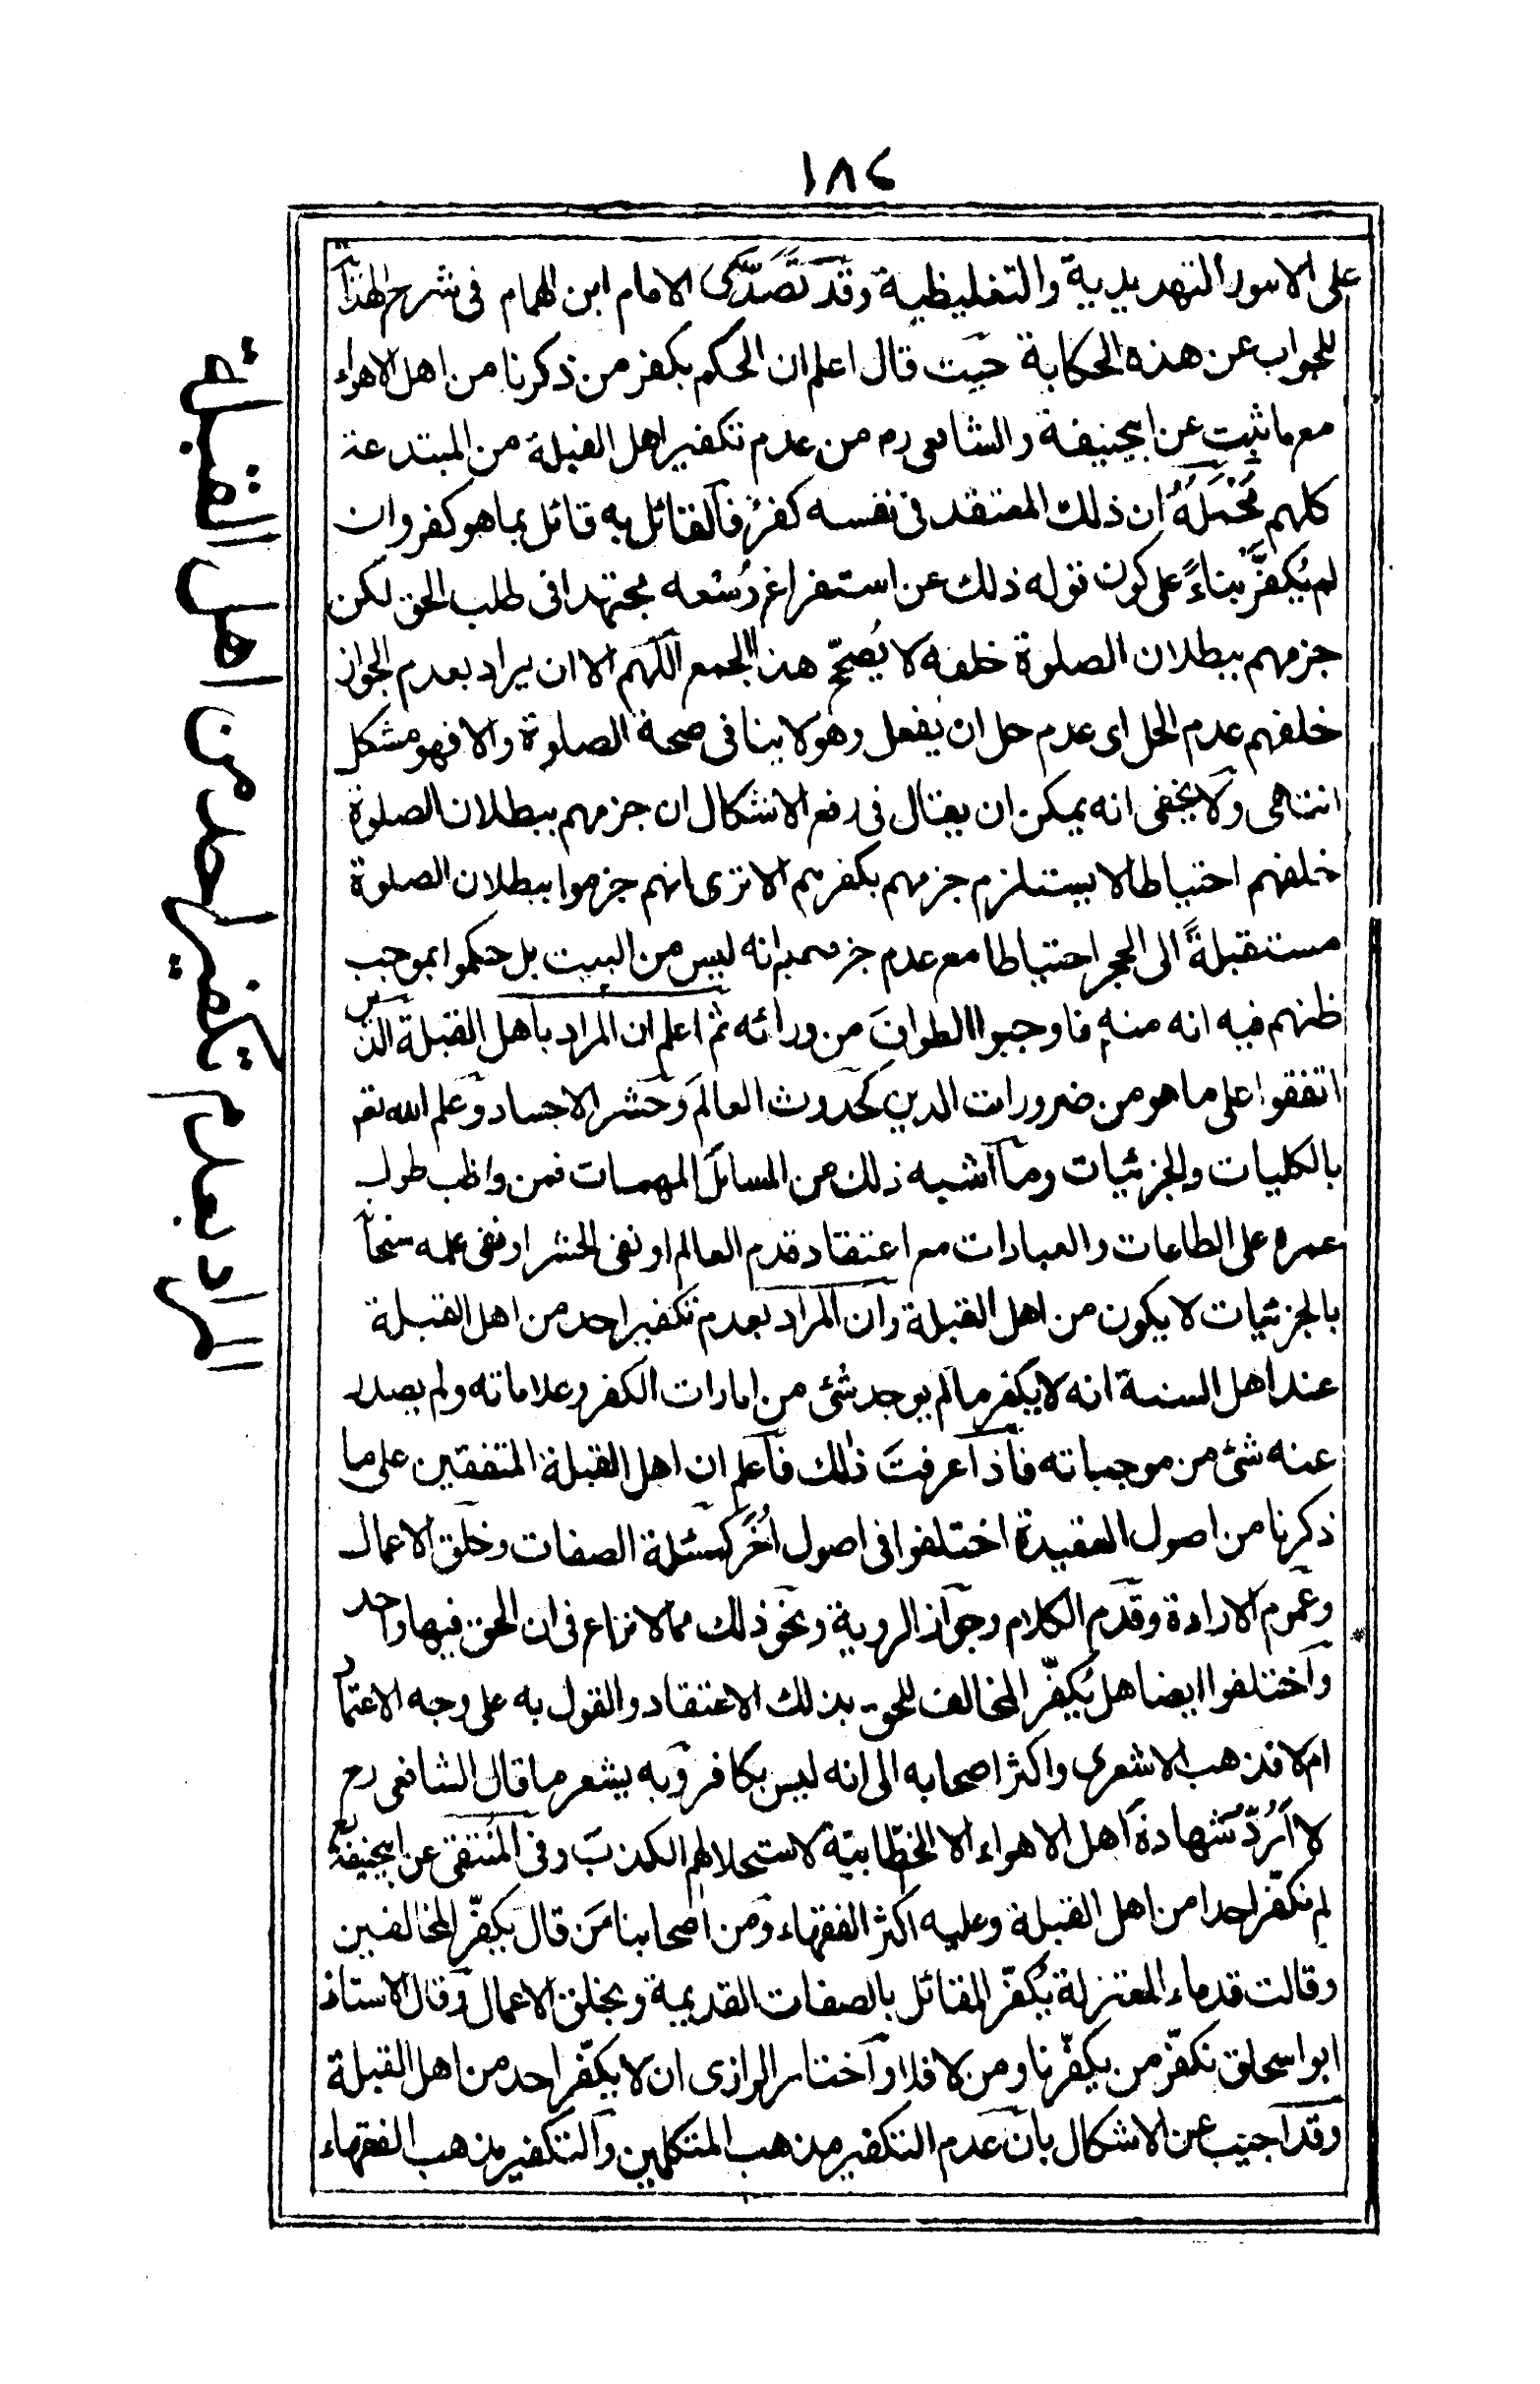 ١٨٤
على الامور التهديدية والتغليظية وقد تَصَدَّى الامام ابن الهمام فى شرح الهداية
للجواب عن هذه الحكاية حيث قال اعلم ان الحكم بكفر من ذكرنا من اهل الاهواء
مع ما ثبت عن ابيحنيفة والشافعى رح من عدم تكفير اهل القبلة من المبتدعة
كلهم مَحْمَلَهُ ان ذلك المعتقد فى نفسه كفرٌ فالقائل به قائل بما هو كفر وان
لم يُكَفَّرْ بناءً على كون قوله ذلك عن استفراغ وُسْعه مجتهدا فى طلب الحق لكن
جزمهم ببطلان الصلوة خلفه لا يُصَحّح هذا الجمع اللّهم الا ان يراد بعدم الجواز
خلفهم عدم الحل اى عدم حل ان يفعل وهو لا ينافى صحة الصلوة والا فهو مشكل
انتهى ولا يخفى انه يمكن ان يقال فى رفع الاشكال ان جزمهم ببطلان الصلوة
خلفهم احتياطا لا يستلزم جزمهم بكفرهم الا ترى انهم جزموا ببطلان الصلوة
مستقبلةً الى الحجر احتياطا مع عدم جزمهم بانه ليس من البيت بل حكموا بموجب
ظنهم فيه انه منه فاوجبوا الطواف من ورائه ثم اعلم ان المراد باهل القبلة الذين
اتفقوا على ما هو من ضرورات الدين كحدوث العالم وحشر الاجساد وعلم الله تعه
بالكليات والجزئيات وما اشبه ذلك من المسائل المهمات فمن واظب طول
عمره على الطاعات والعبادات مع اعتقاد قدم العالم او نفى الحشر او نفى علمه سبحانه
بالجزئيات لا يكون من اهل القبلة وان المراد بعدم تكفير احد من اهل القبلة
عند اهل السنة انه لا يكفر ما لم يوجد شئ من امارات الكفر وعلاماته ولم يصدر
عنه شئ من موجباته فاذا عرفتَ ذلك فاعلم ان اهل القبلة المتفقين على ما
ذكرنا من اصول العقيدة اختلفوا فى اصول اُخَرَ كمسئلة الصفات وخلق الاعمال
وعموم الارادة وقدم الكلام وجواز الروية ونحو ذلك مما لا نزاع فى ان الحق فيها واحد
واختلفوا ايضا هل يُكفّر المخالف للحق بذلك الاعتقاد والقول به على وجه الاعتماد
ام لا فذهب الاشعرى واكثر اصحابه الى انه ليس بكافر وبه يشعر ما قال الشافعى رح
لا اَرُدّ شهادةَ اهل الاهواء الا الخطّابيّة لاستحلالهم الكذبَ وفى المُنتقى عن ابيحنيفة رح
لم نكفّر احدا من اهل القبلة وعليه اكثر الفقهاء ومن اصحابنا مَن قال بكفّر المخالفين
وقالت قدماء المعتزلة يُكفّر القائل بالصفات القديمة وبخلق الاعمال وقال الاستاذ
ابو اسحاق نكفّر من يكفّرنا ومن لا فلا واختار الرازى ان لا يكفّر احد من اهل القبلة
وقد اجيب عن الاشكال بان عدم التكفير مذهب المتكلمين والتكفير مذهب الفقهاء
المراد بعدم تكفير احد من اهل القبلة